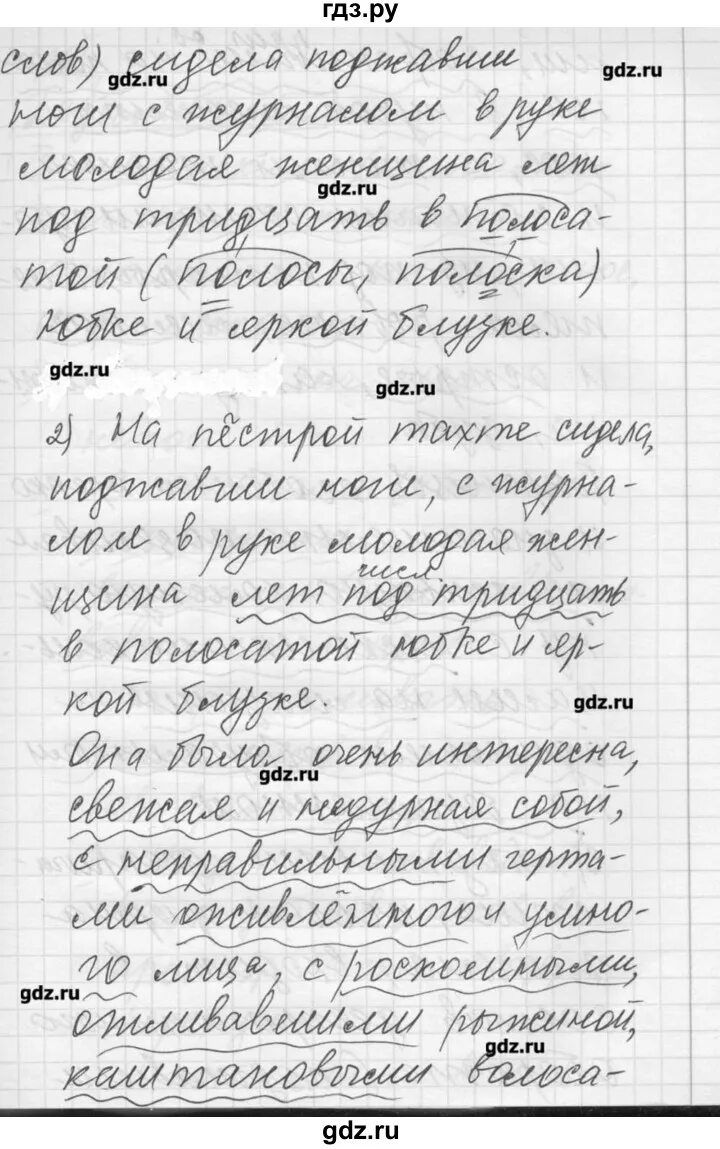 гдз.ру
слов) сидела поджавши
gdz.ru gdz.ru
ноги с журналом в руке
молодая женщина лет
gdz.ru
под тридцать в полоса-
той (полосы, полоска)
юбке и яркой блузке.
gdz.ru gdz.ru
2) На пёстрой тахте сидела,
поджавши ноги, с журна-
лом в руке молодая жен-
числ.
щина лет под тридцать
в полосатой юбке и яр-
кой блузке.
gdz.ru
Она была очень интересна,
gdz.ru
свежая и недурная собой,
с неправильными черта-
ми оживлённого и умно-
го лица, с роскошными,
gdz.ru
отливавшими рыжиной,
gdz.ru
каштановыми волоса-
gdz.ru